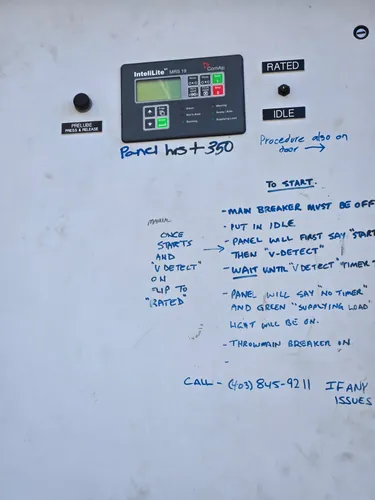 InteliLite MRS 19
ComAp
RATED
IDLE
PRELUBE
PRESS & RELEASE
Panel hrs + 350
Procedure also on
door →
TO START.
- MAIN BREAKER MUST BE OFF
- PUT IN IDLE
- PANEL WILL FIRST SAY "START
THEN "V-DETECT"
- WAIT UNTIL "V DETECT" TIMER"
- PANEL WILL SAY "NO TIMER"
AND GREEN "SUPPLYING LOAD"
LIGHT WILL BE ON.
- THROW MAIN BREAKER ON
-
ONCE
STARTS →
AND
"V DETECT"
ON
FLIP TO
"RATED"
CALL - (403) 845-9211 IF ANY
ISSUES